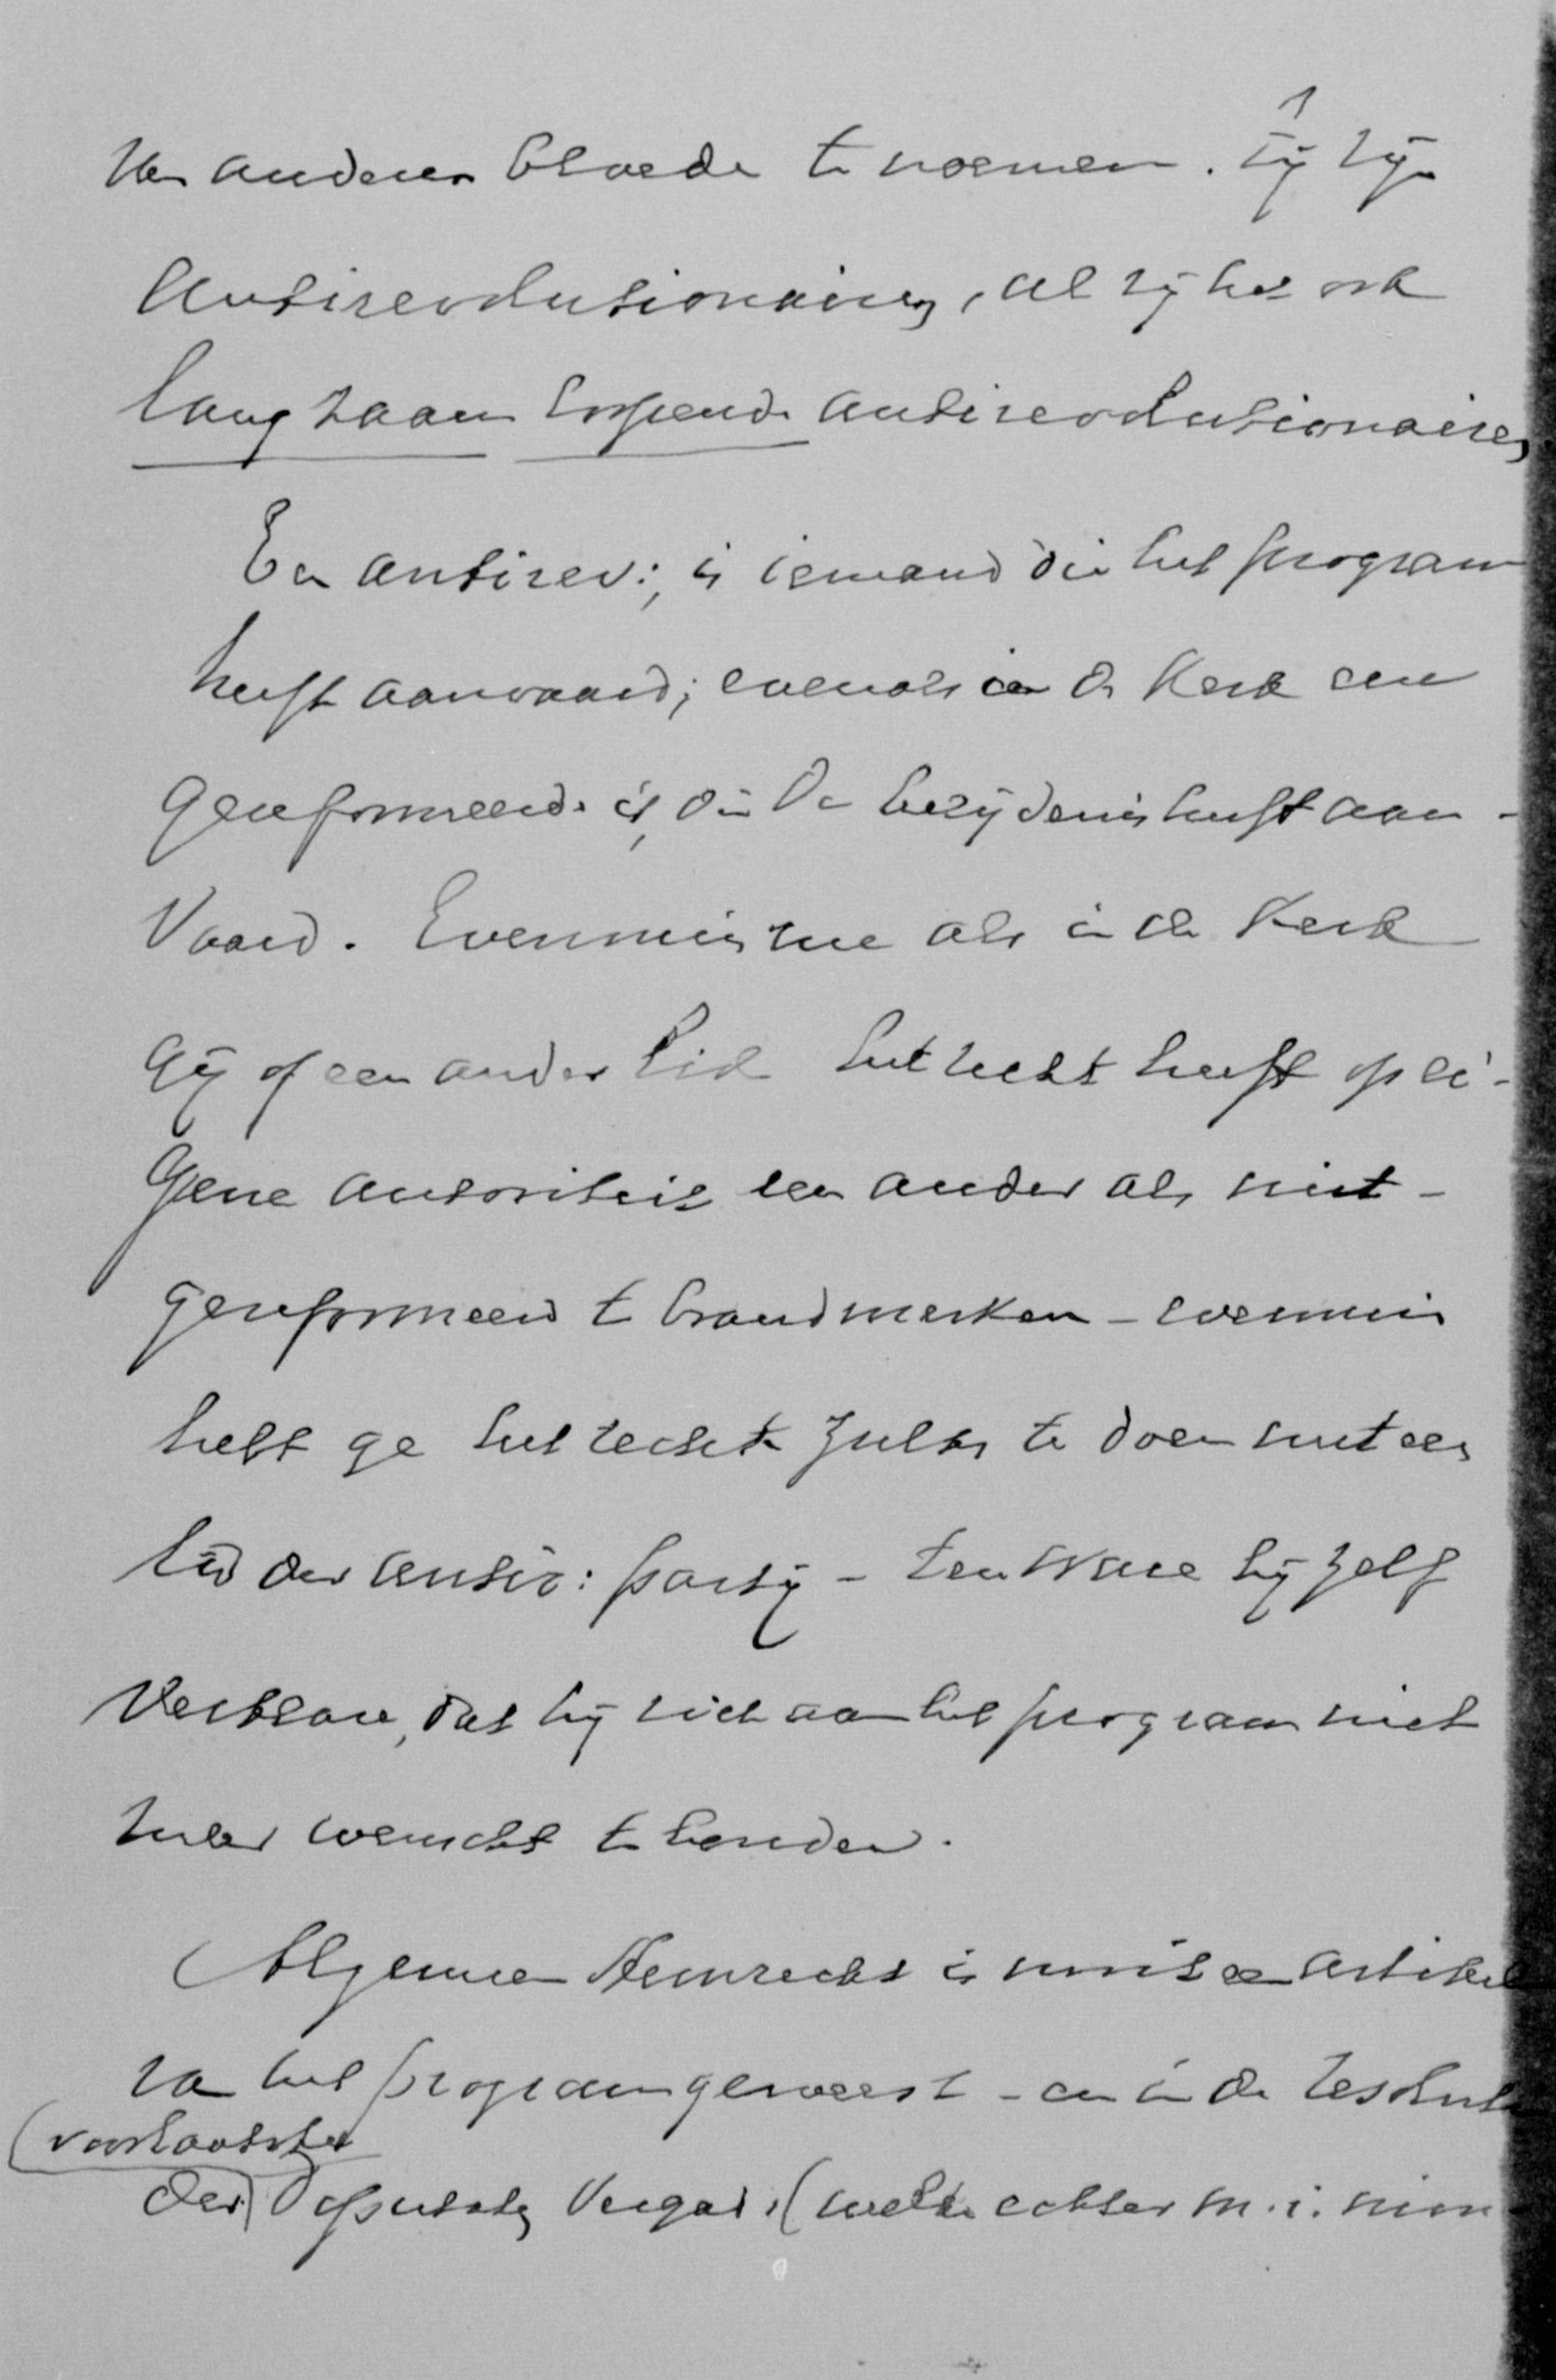 van anderen bloede te noemen. Zij zijn
Antirevolutionairen, al zij het ook
langzaam loopende antirevolutionairen
Een antirev:, is iemand die het program
heeft aanvaard; evenals in de Kerk een
Gereformeerde is, die de belijdenis heeft aan-
vaard. Evenmin nu als in de Kerk
Gij of een ander lid het recht heeft op ei-
gene autoriteit een ander als niet-
gereformeerd te brandmerken - evenmin
hebt ge het recht zulks te doen met een
lid der antir: partij - ten ware hij zelf
verklare, dat hij zich aan het program niet
meer wenscht te houden.
Algemeen Stemrecht is nooit een artikel
van het program geweest - en in de
voorlaatste
der Deputaten Vergad. (welke echter m.i.